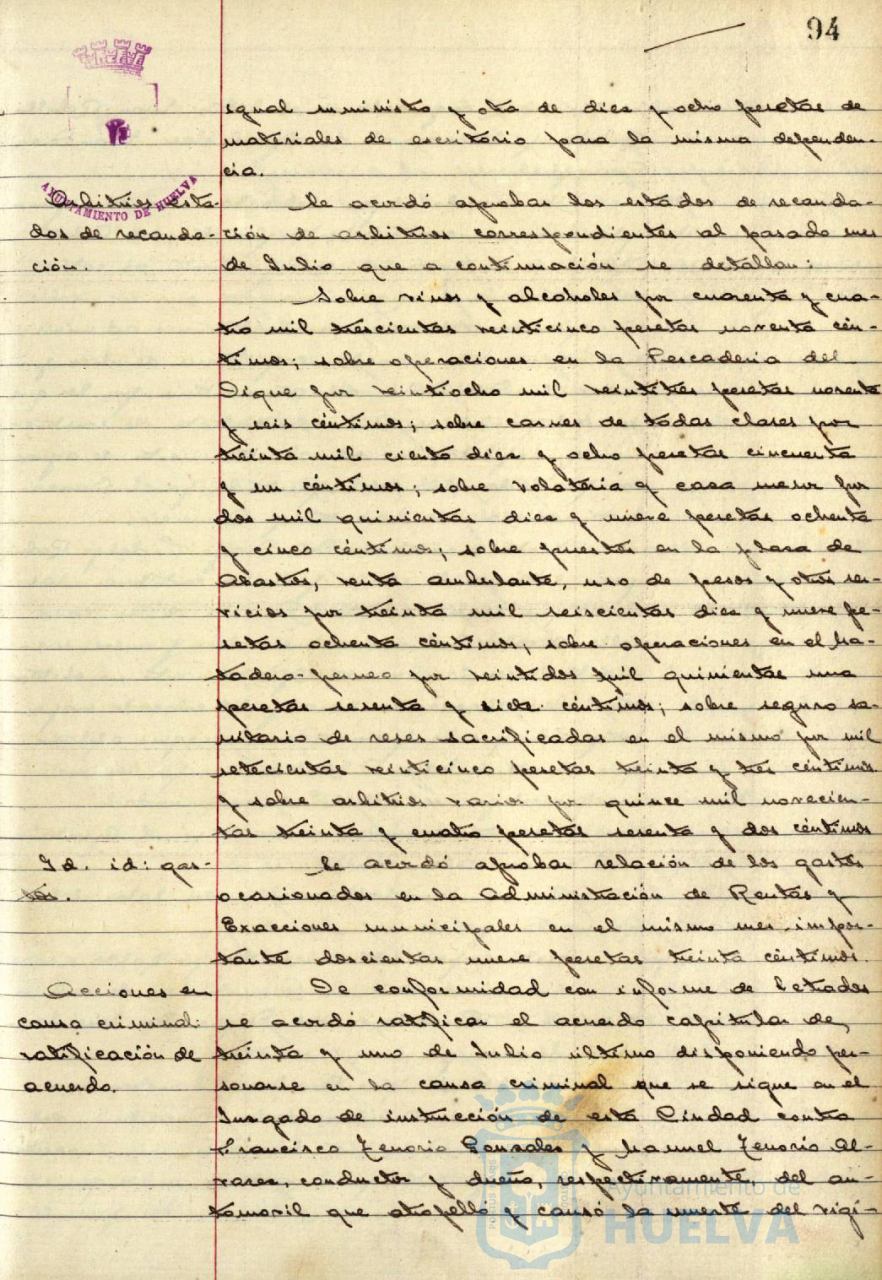 94
igual suministro y otra de diez y ocho pesetas de
materiales de escritorio para la misma dependen-
cia.
AYUNTAMIENTO DE HUELVA
Arbitrios: esta-
dos de recauda-
ción.
Se acordó aprobar los estados de recauda-
ción de arbitrios correspondientes al pasado mes
de Julio que a continuación se detallan:
Sobre vinos y alcoholes por cuarenta y cua-
tro mil trescientas veinticinco pesetas noventa cén-
timos; sobre operaciones en la Pescaderia del
Dique por veintiocho mil veintitres pesetas noventa
y seis céntimos; sobre carnes de todas clases por
treinta mil ciento diez y ocho pesetas cincuenta
y un céntimos; sobre volateria y caza menor por
dos mil quinientas diez y nueve pesetas ochenta
y cinco céntimos; sobre puestos en la plaza de
Abastos, venta ambulante, uso de pesos y otros ser-
vicios por treinta mil seiscientas diez y nueve pe-
setas ochenta céntimos; sobre operaciones en el Ma-
tadero por veintidos mil quinientas una
pesetas sesenta y siete céntimos; sobre seguro sa-
nitario de reses sacrificadas en el mismo por mil
setecientas veinticinco pesetas treinta y tres céntimos
y sobre arbitrios varios por quince mil novecien-
tas treinta y cuatro pesetas sesenta y dos céntimos
Id. id: gas-
tos.
Se acordó aprobar relación de los gastos
ocasionados en la Administración de Rentas y
Exacciones municipales en el mismo mes impor-
tante doscientas nueve pesetas treinta céntimos.
Acciones en
causa criminal:
ratificación de
acuerdo.
De conformidad con informe de Letrados
se acordó ratificar el acuerdo capitular de
treinta y uno de Julio último disponiendo per-
sonarse en la causa criminal que se sigue en el
Juzgado de instrucción de esta Ciudad contra
Francisco Tenorio Gonzales y Manuel Tenorio Al-
varez, conductor y dueño, respectivamente, del au-
tomovil que atropelló y causó la muerte del vigi-
Ayuntamiento de
HUELVA